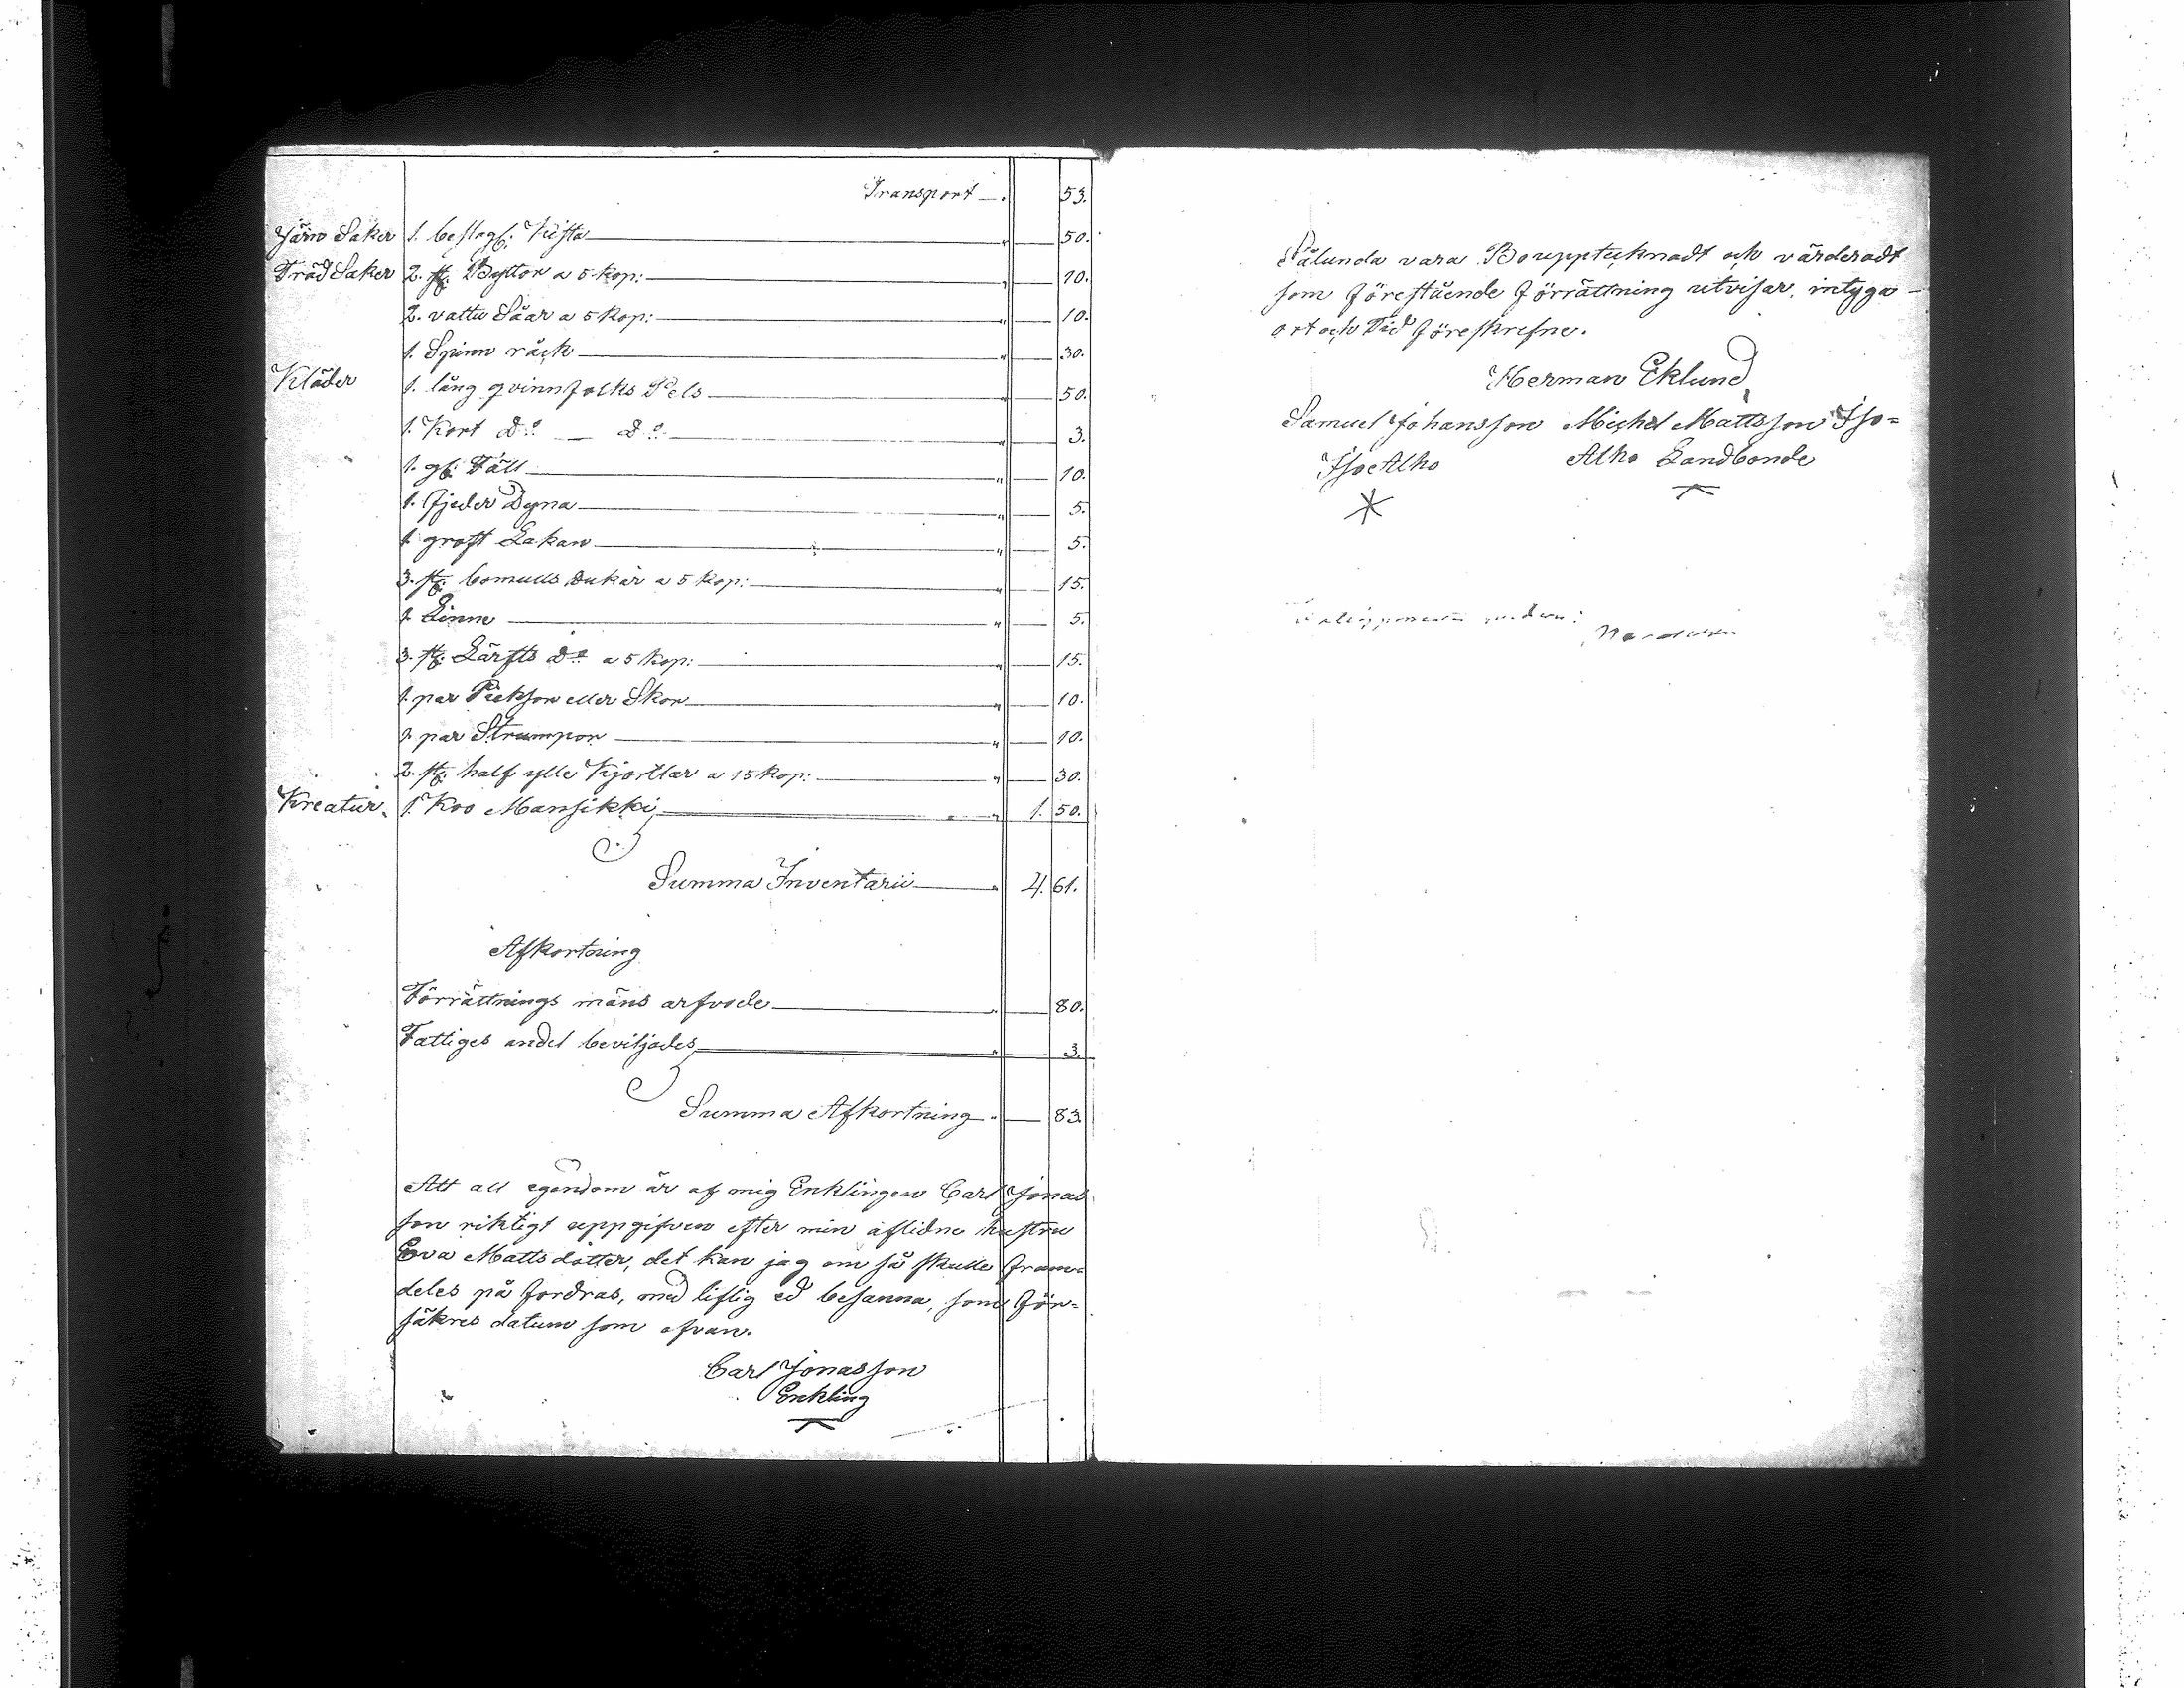 Transport 53.
Järn Saker 1. beslag gl: Kista " 50.
Träd Saker 2. st: Byttor a 5 kop: " 10.
2. vattu Såar a 5 kop: " 10.
1. Spinn råck " 30.
Kläder 1. lång qvinnfolks Pels 50.
1. Kort Do — Do " 3.
1. gl: Fäll " 10.
1. fjeder Dyna " 5.
1 groft Lakan " 5.
3. st: bomulls Dukar a 5 kop: " 15.
1 Linne " 5.
3. st: Lärfts Do a 5 kop: " 15.
1. par Pieksor eller Skor " 10.
1. par Strumpor " 10.
2. st: half ylle Kjortlar a 15 kop: " 30.
Kreatur. 1. Koo Mansikki " 1. 50.
Summa Inventarii " 4. 61.
Afkortning
Förrättnings mäns arfvode " 80.
Fattiges andel beviljades " 3.
Summa Afkortning " 83.
Att all egendom är af mig Enklingen Carl Jonas
son riktigt uppgifven efter min aflidne hustru
Eva Mattsdotter, det kan jag om så skulle fram=
deles på fordras, med liflig ed besanna, som för=
säkres datum som ofvan.
Carl Jonasson
Enkling
Sålunda vara Boupptecknadt och värderadt
som förestående förrättning utvisar, intyga
ort och Tid föreskrefne.
Herman Eklund
Samuel Johansson Michel Mattsson Iso=
Iso Alho Alho Landbonde